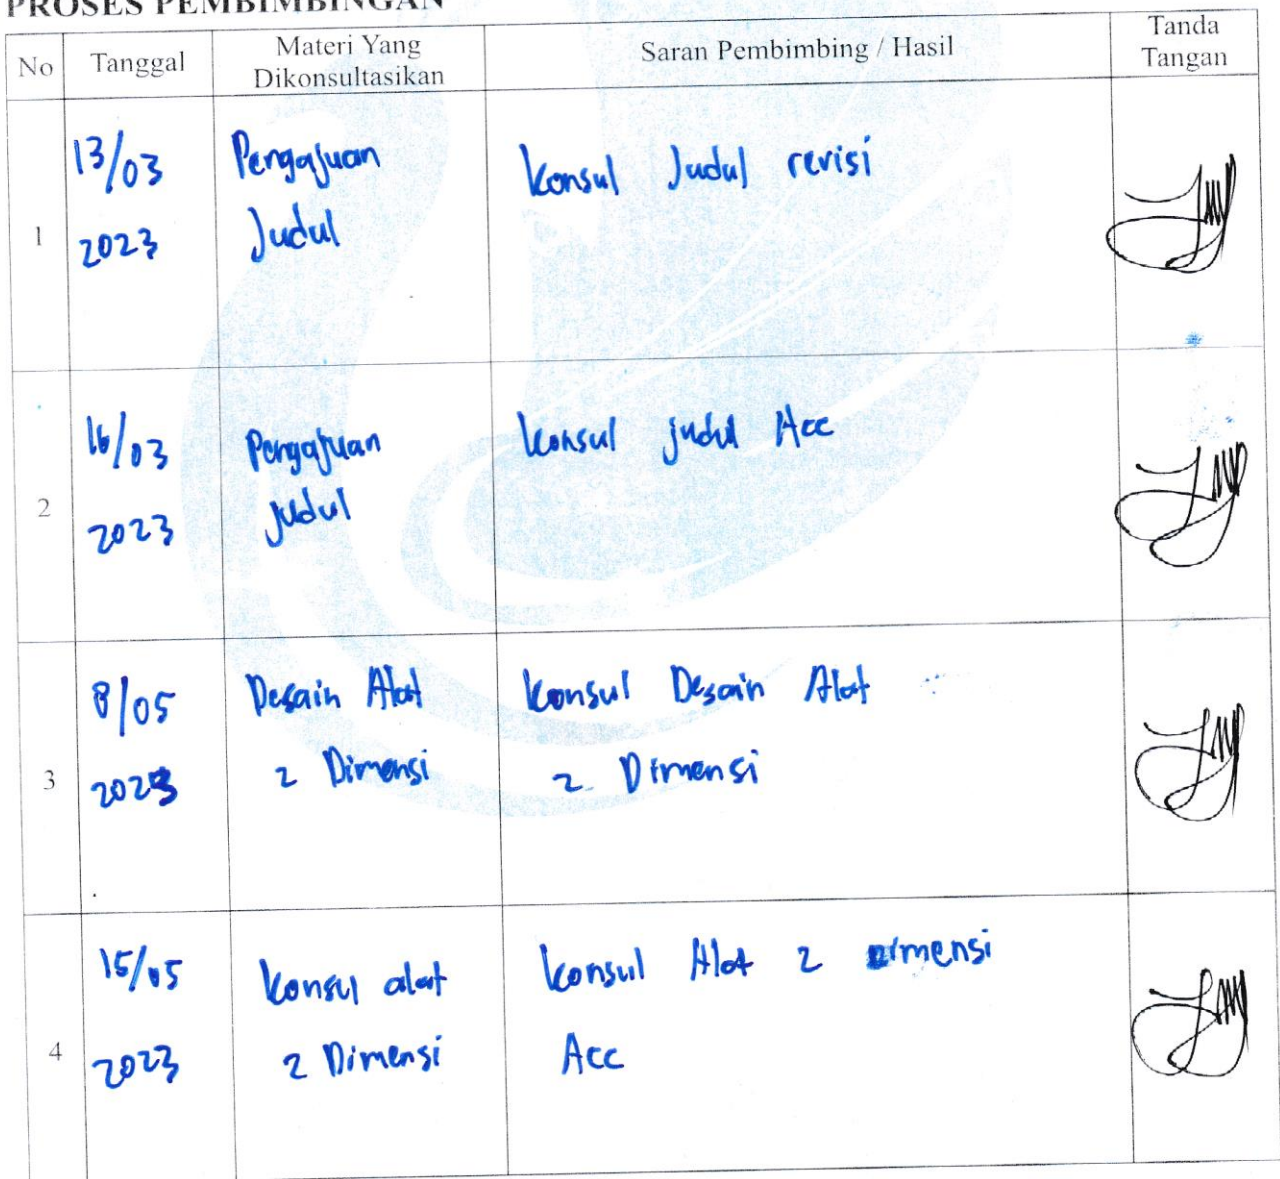 PROSES PEMBIMBINGAN
No
Tanggal
Materi Yang
Dikonsultasikan
Saran Pembimbing / Hasil
Tanda
Tangan
1
13/03
2023
Pengajuan
Judul
Konsul Judul revisi
2
16/03
2023
Pengajuan
judul
Konsul judul Acc
3
8/05
2023
Desain Alat
2 Dimensi
Konsul Desain Alat
2 Dimensi
4
15/05
2023
Konsul alat
2 Dimensi
Konsul Alat 2 Dimensi
Acc